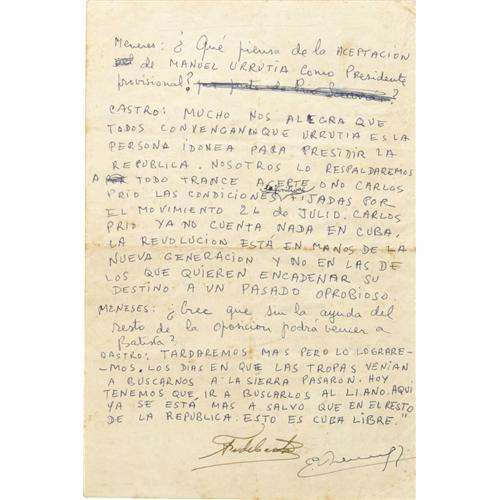 Meneses: ¿Qué piensa de la ACEPTACION
de MANUEL URRUTIA como Presidente
provisional?
CASTRO: MUCHO NOS ALEGRA QUE
TODOS CONVENGAN QUE URRUTIA ES LA
PERSONA IDONEA PARA PRESIDIR LA
REPUBLICA. NOSOTROS LO RESPALDAREMOS
A TODO TRANCE ACEPTE O NO CARLOS
PRIO LAS CONDICIONES FIJADAS POR
EL MOVIMIENTO 26 DE JULIO. CARLOS
PRIO YA NO CUENTA NADA EN CUBA.
LA REVOLUCION ESTÁ EN MANOS DE LA
NUEVA GENERACION Y NO EN LAS DE
LOS QUE QUIEREN ENCADENAR SU
DESTINO A UN PASADO OPROBIOSO.
MENESES: ¿Cree que sin la ayuda del
resto de la oposicion podra vencer a
Batista?
CASTRO: TARDAREMOS MAS PERO LO LOGRARE-
MOS. LOS DIAS EN QUE LAS TROPAS VENIAN
A BUSCARNOS A LA SIERRA PASARON. HOY
TENEMOS QUE IR A BUSCARLOS AL LLANO. AQUI
YA SE ESTÁ MAS A SALVO QUE EN EL RESTO
DE LA REPUBLICA. ESTO ES CUBA LIBRE."
Fidel Castro